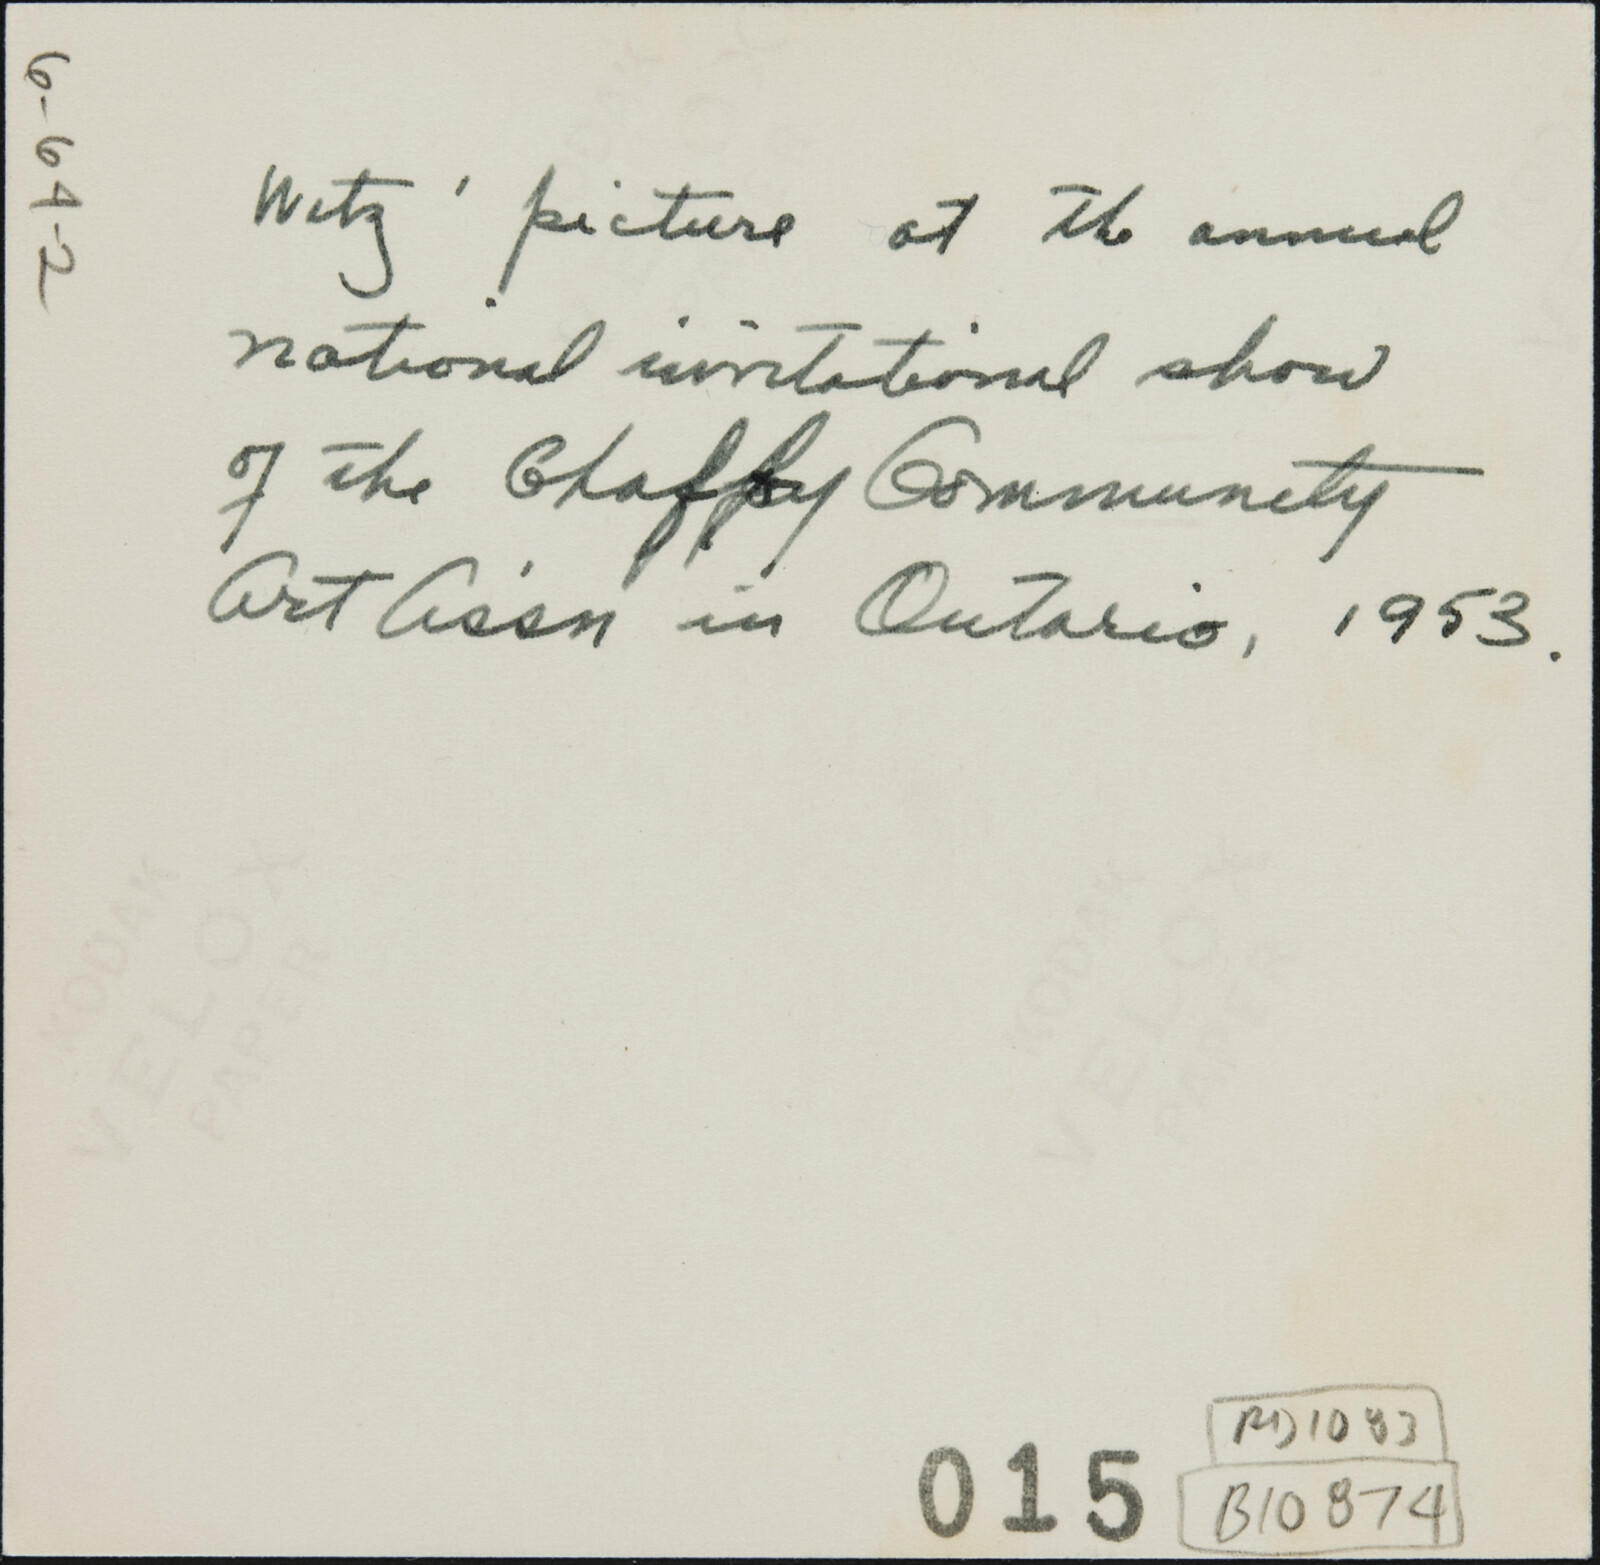 6-64-2
Witz' picture at the annual
national invitational show
of the Chaffey Community
Art Ass'n in Ontario, 1953.
KODAK
VELOX
PAPER
KODAK
VELOX
PAPER
015
B10874